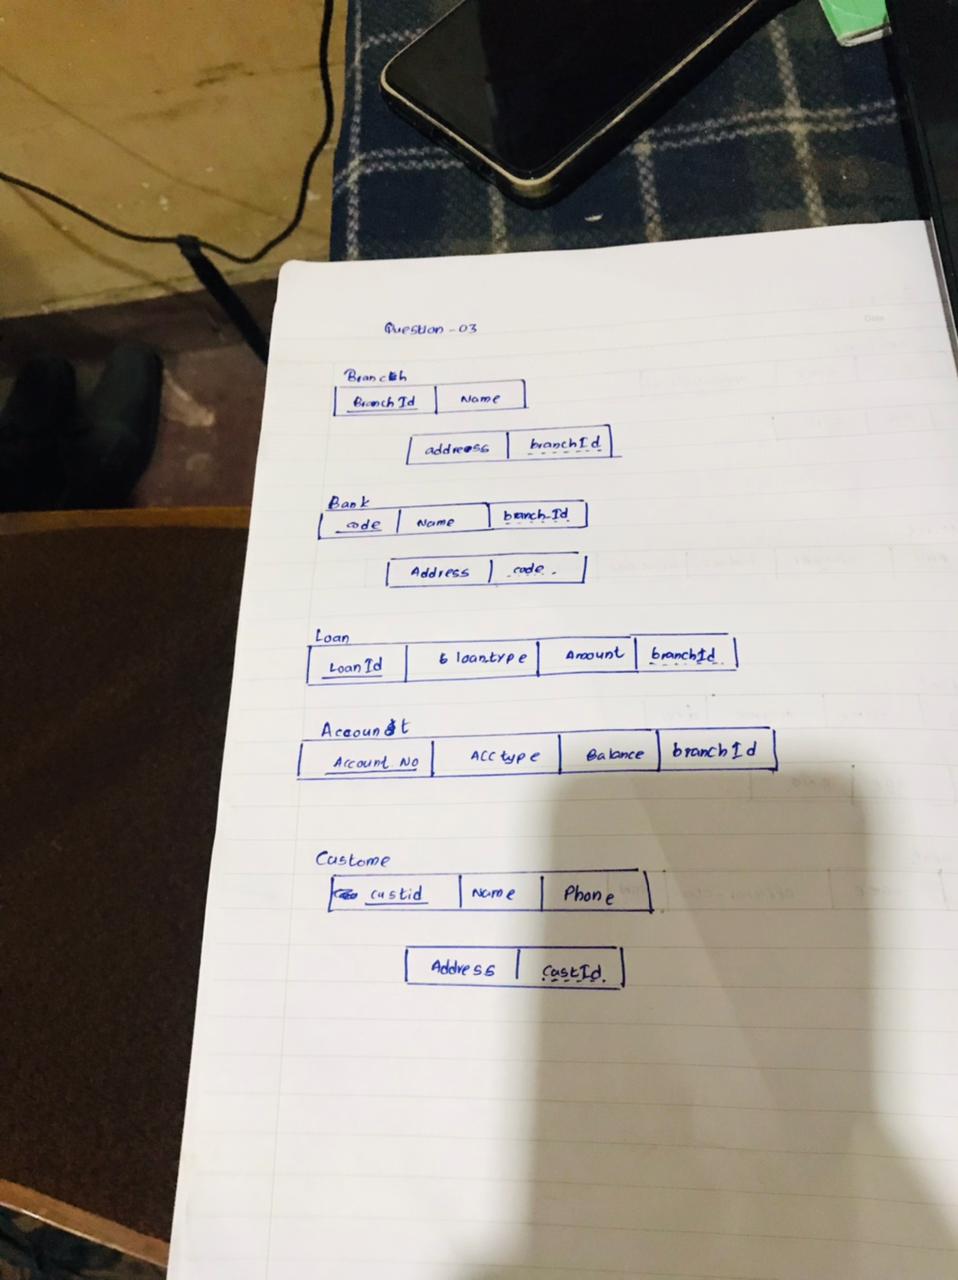 Question - 03
Branch
Branch Id Name
address branchId
Bank
code Name branch-Id
Address code
Loan
Loan Id loantype Amount branchId
Account
Account No ACC type Balance branch Id
Custome
custid Name Phone
Address CustId